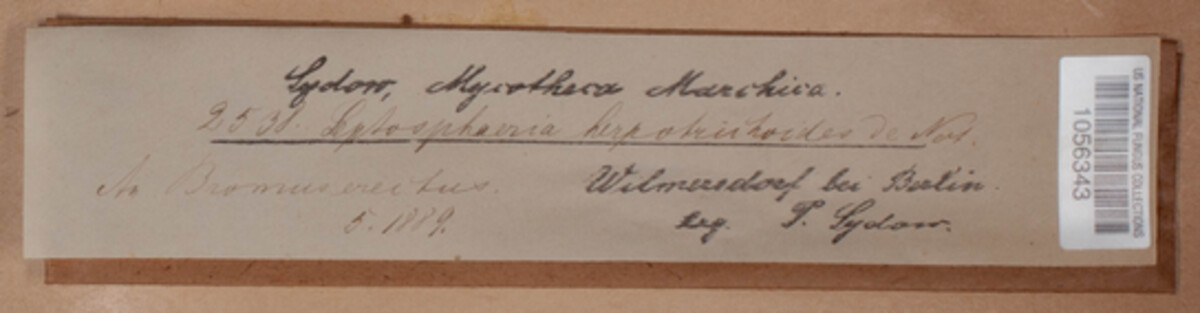 Sydow, Mycotheca Marchica.
2538. Leptosphaeria herpotrichoides de Not.
An Bromus erectus.
5. 1889.
Wilmersdorf bei Berlin.
leg. P. Sydow.
US NATIONAL FUNGUS COLLECTIONS
1056343